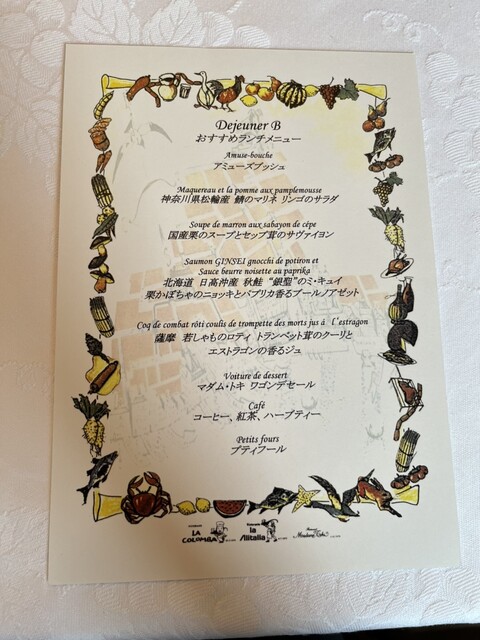 Dejeuner B
おすすめランチメニュー
Amuse-bouche
アミューズブッシュ
Maquereau et la pomme aux pamplemousse
神奈川県松輪産 鯖のマリネ リンゴのサラダ
Soupe de marron aux sabayon de cèpe
国産栗のスープとセップ茸のサヴァイヨン
Saumon GINSEI gnocchi de potiron et
Sauce beurre noisette au paprika
北海道 日高沖産 秋鮭 “銀聖”のミ・キュイ
栗かぼちゃのニョッキとパプリカ香るブールノアゼット
Coq de combat rôti coulis de trompette des morts jus à l'estragon
薩摩 若しゃものロティ トランペット茸のクーリと
エストラゴンの香るジュ
Voiture de dessert
マダム・トキ ワゴンデセール
Café
コーヒー、紅茶、ハーブティー
Petits fours
プティフール
LA COLOMBA
la Alitalia